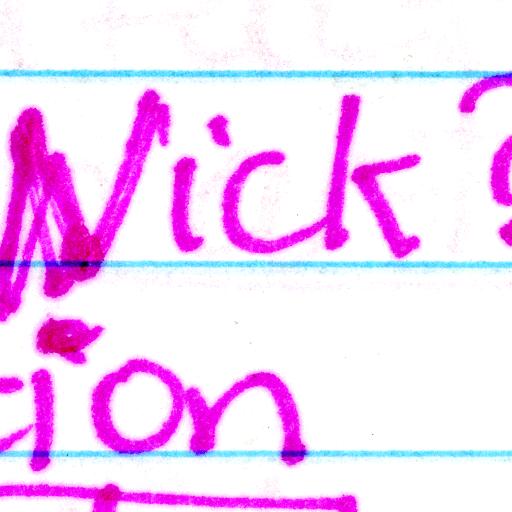 Nick?
cion